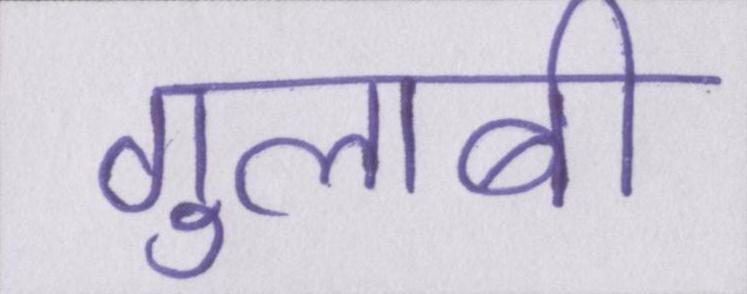 गुलाबी